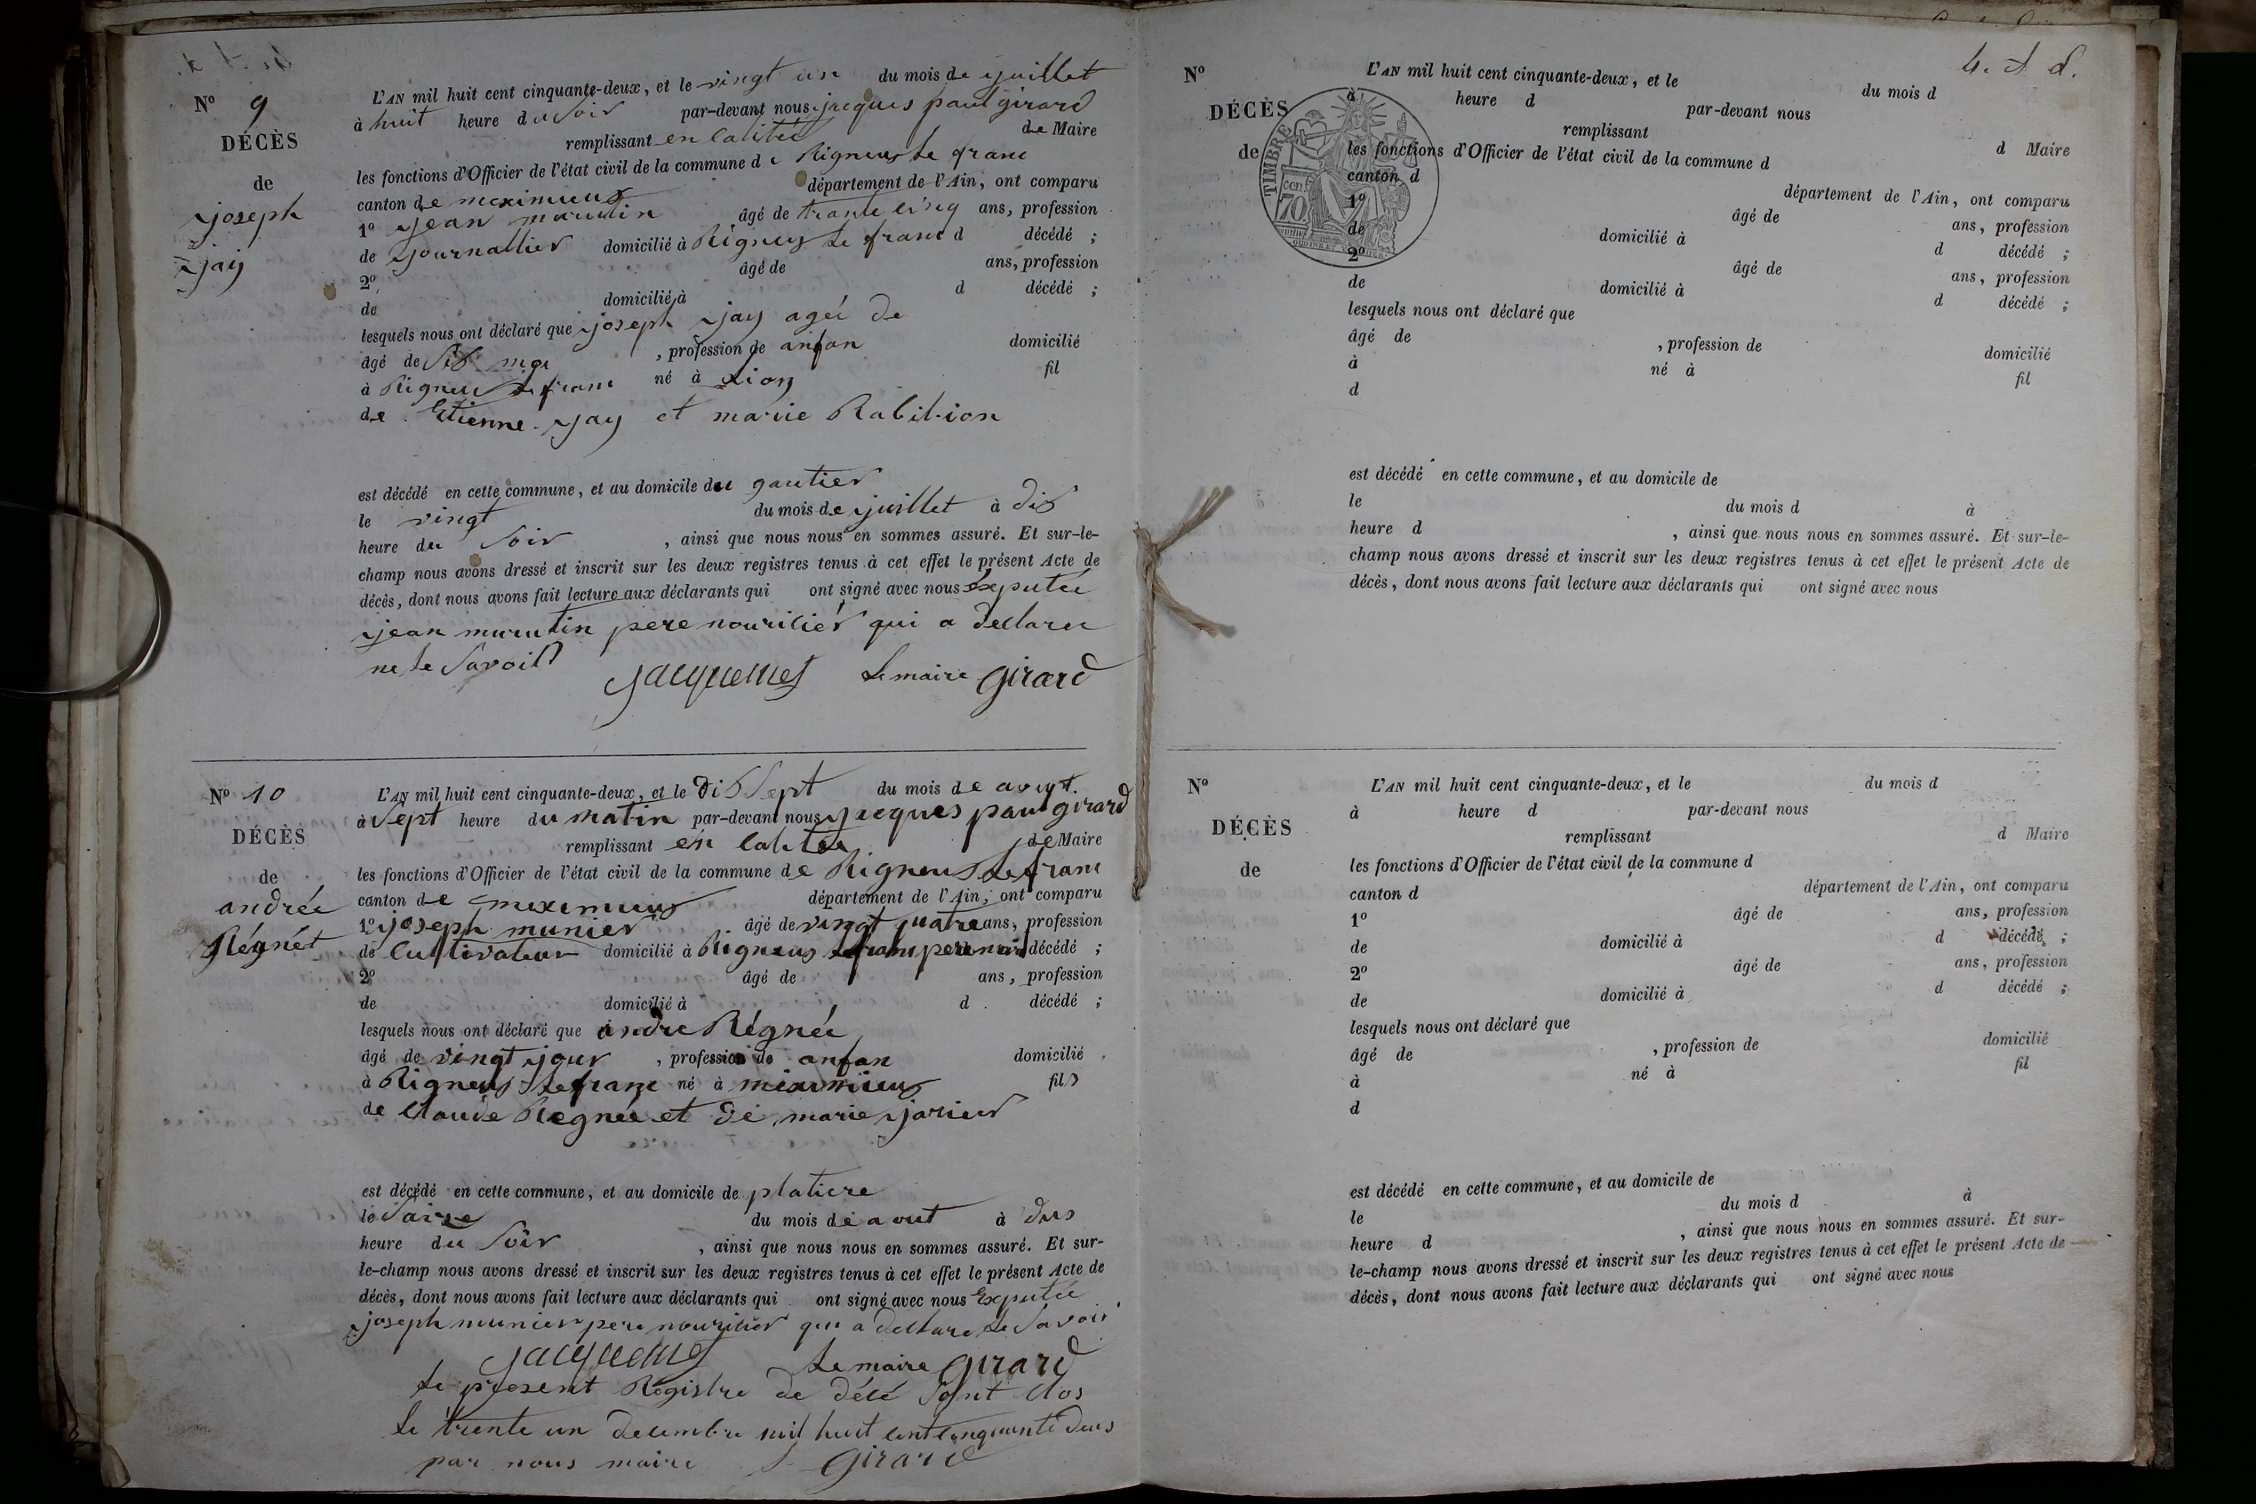 Nº 9
DÉCÈS
de
joseph
jay
L'AN mil huit cent cinquante-deux, et le vingt un du mois de juillet
à huit heure du soir par-devant nous jacques paul girard
remplissant en calité de Maire
les fonctions d'Officier de l'état civil de la commune de Rigneux le franc
canton de meximieux département de l'Ain, ont comparu
1º jean âgé de trante cinq ans, profession
de journallier domicilié à Rigneux le franc d décédé ;
2º âgé de ans, profession
de domicilié à d décédé ;
lesquels nous ont déclaré que joseph jay ageé de
âgé de six moi , profession de anfan domicilié
à Rigneux le franc né à Lion fil
de Etienne jay et marie Rabilion
est décédé en cette commune, et au domicile du gautier
le vingt du mois de juillet à dix
heure du soir , ainsi que nous nous en sommes assuré. Et sur-le-
champ nous avons dressé et inscrit sur les deux registres tenus à cet effet le présent Acte de
décès, dont nous avons fait lecture aux déclarants qui ont signé avec nous Exeputée
jean murutin pere nouricier qui a declaree
ne le savoir
jacquemet Le maire girard
Nº 10
DÉCÈS
de
andrée
Régnét
L'AN mil huit cent cinquante-deux, et le dix sept du mois de
à sept heure du matin par-devant nous jacques paul girard
remplissant en calitee de Maire
les fonctions d'Officier de l'état civil de la commune de Rigneux le franc
canton de meximieux département de l'Ain, ont comparu
1º joseph munier âgé de vingt quatre ans, profession
de cultivateur domicilié à Rigneux le franc décédé ;
2º âgé de ans, profession
de domicilié à d décédé ;
lesquels nous ont déclaré que andre Régnée
âgé de vingt jour , profession de anfan domicilié
à Rigneux le franc né à meximieux fils
de claude Regnée et de marie jarieur
est décédé en cette commune, et au domicile de platiere
le saize du mois de aout à dus
heure du soir , ainsi que nous nous en sommes assuré. Et sur-
le-champ nous avons dressé et inscrit sur les deux registres tenus à cet effet le présent Acte de
décès, dont nous avons fait lecture aux déclarants qui ont signé avec nous Exeputée
joseph munier pere nouricier qui a declare le savoir
jacquemet Le maire girard
Le present Registre de décé sont clos
le trente un decembre mil huit cent cinquante deus
par nous maire girard
Nº
DÉCÈS
de
TIMBRE
70 cen.
L'AN mil huit cent cinquante-deux, et le du mois d
à heure d par-devant nous
remplissant d Maire
les fonctions d'Officier de l'état civil de la commune d
canton d département de l'Ain, ont comparu
1º âgé de ans, profession
de domicilié à d décédé ;
2º âgé de ans, profession
de domicilié à d décédé ;
lesquels nous ont déclaré que
âgé de , profession de domicilié
à né à fil
d
est décédé en cette commune, et au domicile de
le du mois d à
heure d , ainsi que nous nous en sommes assuré. Et sur-le-
champ nous avons dressé et inscrit sur les deux registres tenus à cet effet le présent Acte de
décès, dont nous avons fait lecture aux déclarants qui ont signé avec nous
Nº
DÉCÈS
de
L'AN mil huit cent cinquante-deux, et le du mois d
à heure d par-devant nous
remplissant d Maire
les fonctions d'Officier de l'état civil de la commune d
canton d département de l'Ain, ont comparu
1º âgé de ans, profession
de domicilié à d décédé ;
2º âgé de ans, profession
de domicilié à d décédé ;
lesquels nous ont déclaré que
âgé de , profession de domicilié
à né à fil
d
est décédé en cette commune, et au domicile de
le du mois d à
heure d , ainsi que nous nous en sommes assuré. Et sur-
le-champ nous avons dressé et inscrit sur les deux registres tenus à cet effet le présent Acte de
décès, dont nous avons fait lecture aux déclarants qui ont signé avec nous